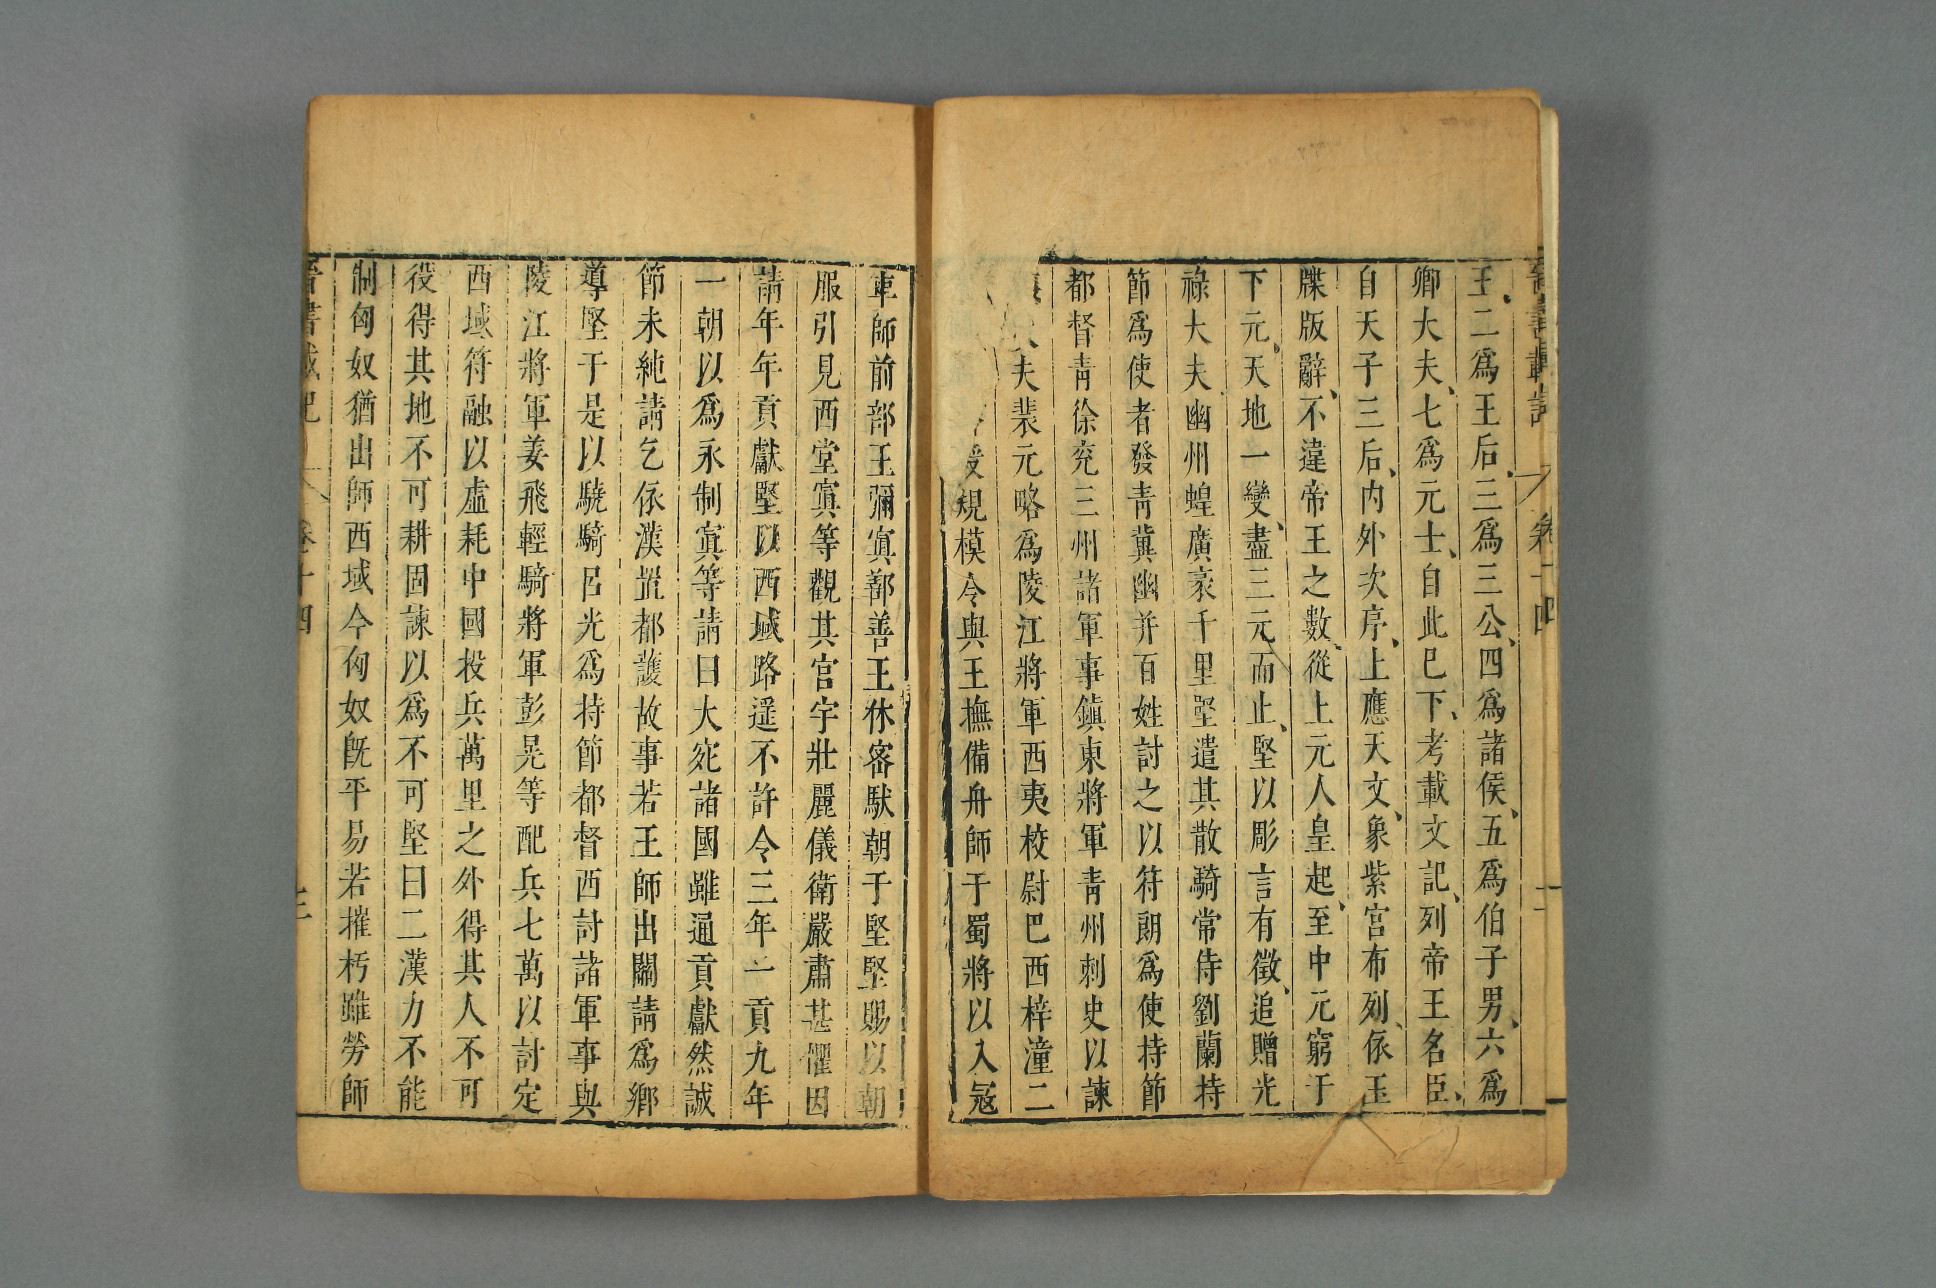 晉書載記 卷十四 二
王、二爲王后、三爲三公、四爲諸侯、五爲伯子男、六爲
卿大夫、七爲元士、自此已下、考載文記、列帝王名臣、
自天子三后、内外次序、上應天文、象紫宮布列、依玉
牒版辭、不違帝王之數、從上元人皇起、至中元窮于
下元、天地一變、盡三元而止、堅以彫言有徵、追贈光
祿大夫、幽州蝗廣袤千里堅遣其散騎常侍劉蘭持
節爲使者發青冀幽并百姓討之以苻朗爲使持節
都督青徐兗三州諸軍事鎮東將軍青州刺史以諫
夫裴元略爲陵江將軍西夷校尉巴西梓潼二
規模令與王撫備舟師于蜀將以入寇
車師前部王彌窴鄯善王休密馱朝于堅堅賜以朝
服引見西堂窴等觀其宮宇壯麗儀衛嚴肅甚懼因
請年年貢獻堅以西域路遥不許令三年一貢九年
一朝以爲永制窴等請曰大宛諸國雖通貢獻然誠
節未純請乞依漢置都護故事若王師出關請爲鄉
導堅于是以驍騎呂光爲持節都督西討諸軍事與
陵江將軍姜飛輕騎將軍彭晃等配兵七萬以討定
西域苻融以虚耗中國投兵萬里之外得其人不可
役得其地不可耕固諫以爲不可堅曰二漢力不能
制匈奴猶出師西域今匈奴旣平易若摧朽雖勞師
晉書載記 卷十四 三